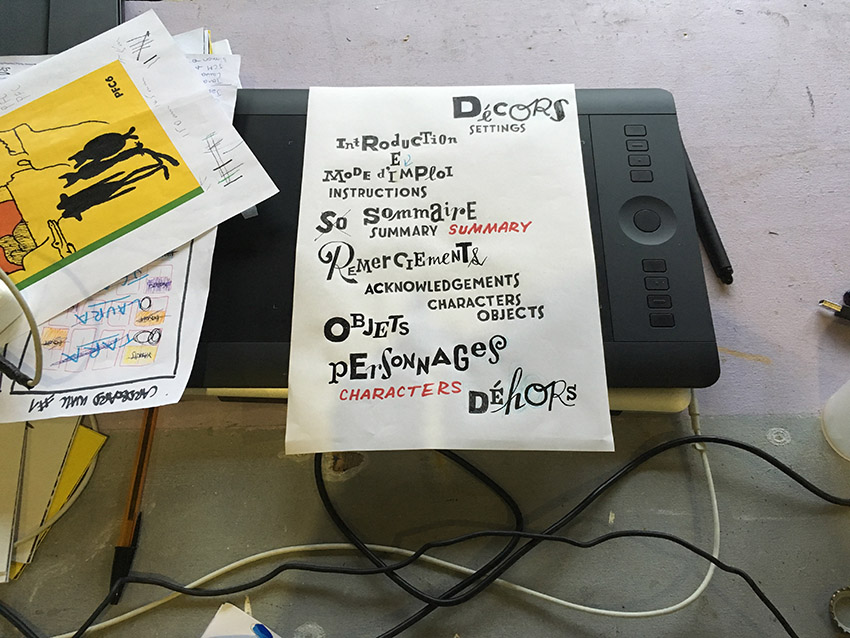 DÉCORS
SETTINGS
IntRoductIon
Et
MODE d'EMPLOI
INSTRUCTIONS
So SommaiRE
SUMMARY SUMMARY
RemERCIEmeNts
ACKNOWLEDGEMENTS
CHARACTERS
OBJECTS
OBJETS
PERSONNAGES
CHARACTERS
DÉHORS
PFC6
LAURA
CARDBOARD WALL #1